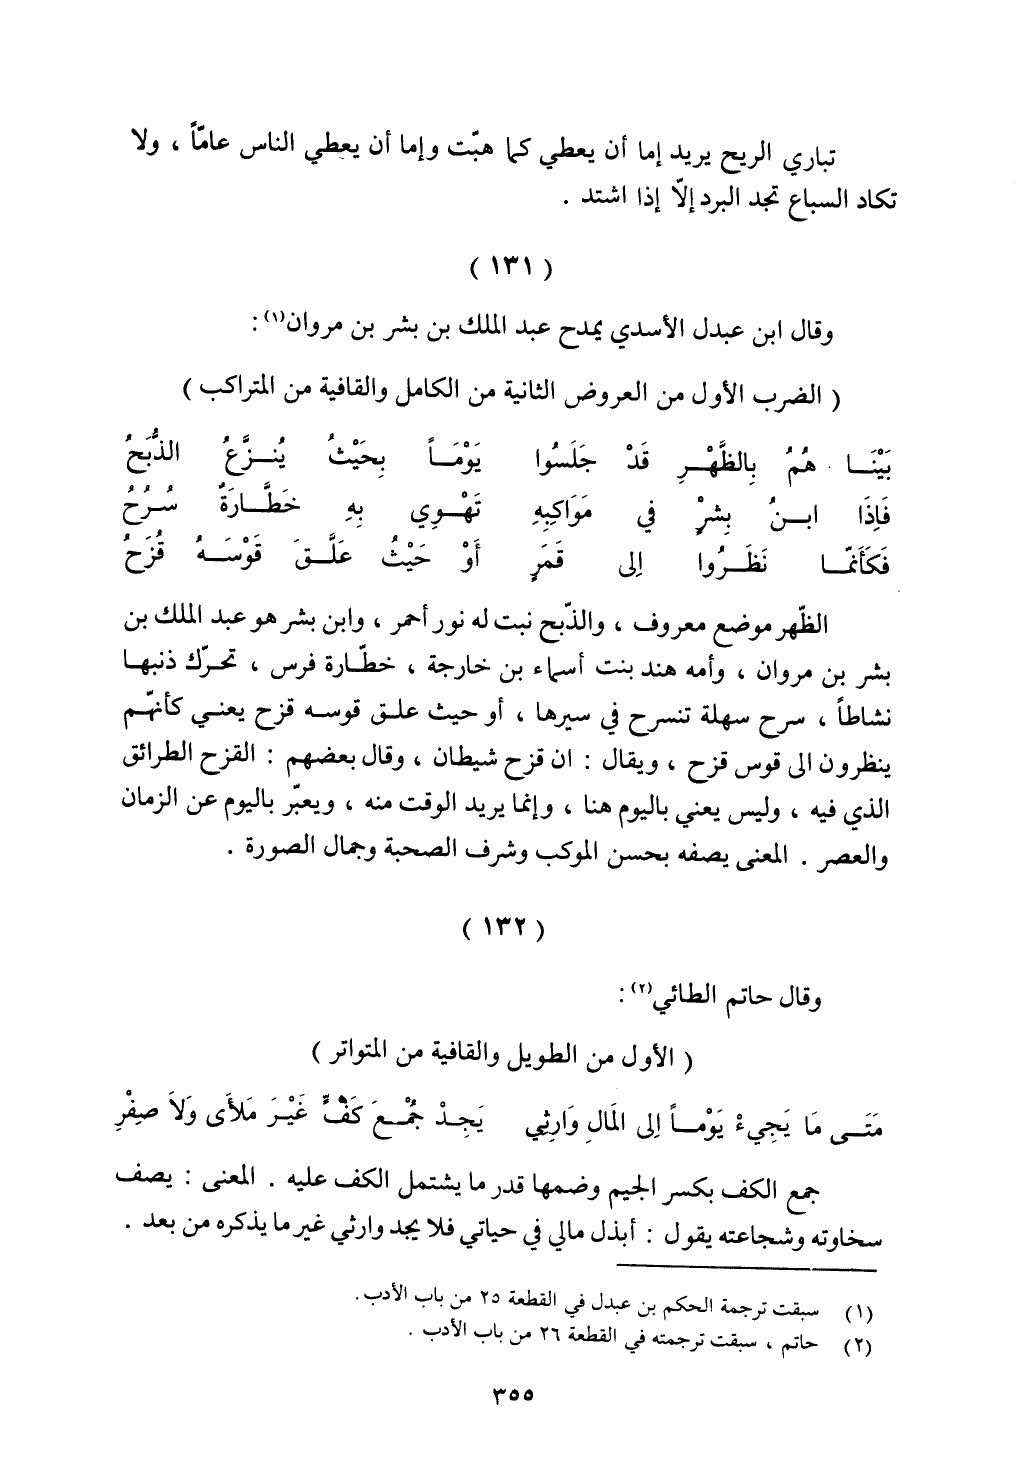 تباري الريح يريد إما أن يعطي كما هبّت وإما أن يعطي الناس عامّاً ، ولا
تكاد السباع تجد البرد إلّا إذا اشتد .
( ١٣١ )
وقال ابن عبدل الأسدي يمدح عبد الملك بن بشر بن مروان(١):
( الضرب الأول من العروض الثانية من الكامل والقافية من المتراكب )
بَيْنَا هُمُ بِالظَّهْرِ قَدْ جَلَسُوا يَوْمَاً بِحَيْثُ يُنزَّعُ الذُّبَحُ
فَإِذَا ابنُ بِشرٍْ في مَوَاكِبِهِ تَهْوِي بِهِ خَطَّارَةٌ سُرُحُ
فَكَأَنمَّا نَظَرُوا إِلى قَمَرٍ أَوْ حَيْثُ عَلَّقَ قَوْسَهُ قُزَحُ
الظّهر موضع معروف ، والذّبح نبت له نور أحمر ، وابن بشر هو عبد الملك بن
بشر بن مروان ، وأمه هند بنت أسماء بن خارجة ، خطّارة فرس ، تحرّك ذنبها
نشاطاً ، سرح سهلة تنسرح في سيرها ، أو حيث علق قوسه قزح يعني كأنهّم
ينظرون الى قوس قزح ، ويقال : ان قزح شيطان ، وقال بعضهم : القزح الطرائق
الذي فيه ، وليس يعني باليوم هنا ، وإنما يريد الوقت منه ، ويعبّر باليوم عن الزمان
والعصر . المعنى يصفه بحسن الموكب وشرف الصحبة وجمال الصورة .
( ١٣٢ )
وقال حاتم الطائي(٢):
( الأول من الطويل والقافية من المتواتر )
مَتَى مَا يَجِيءْ يَوْمَاً إِلى المَالِ وَارِثِي يَجِدْ جُمْعَ كَفٍّ غَيْرَ مَلأَى وَلاَ صِفْرِ
جمع الكف بكسر الجيم وضمها قدر ما يشتمل الكف عليه . المعنى : يصف
سخاوته وشجاعته يقول : أبذل مالي في حياتي فلا يجد وارثي غير ما يذكره من بعد .
(١) سبقت ترجمة الحكم بن عبدل في القطعة ٢٥ من باب الأدب .
(٢) حاتم ، سبقت ترجمته في القطعة ٢٦ من باب الأدب .
٣٥٥